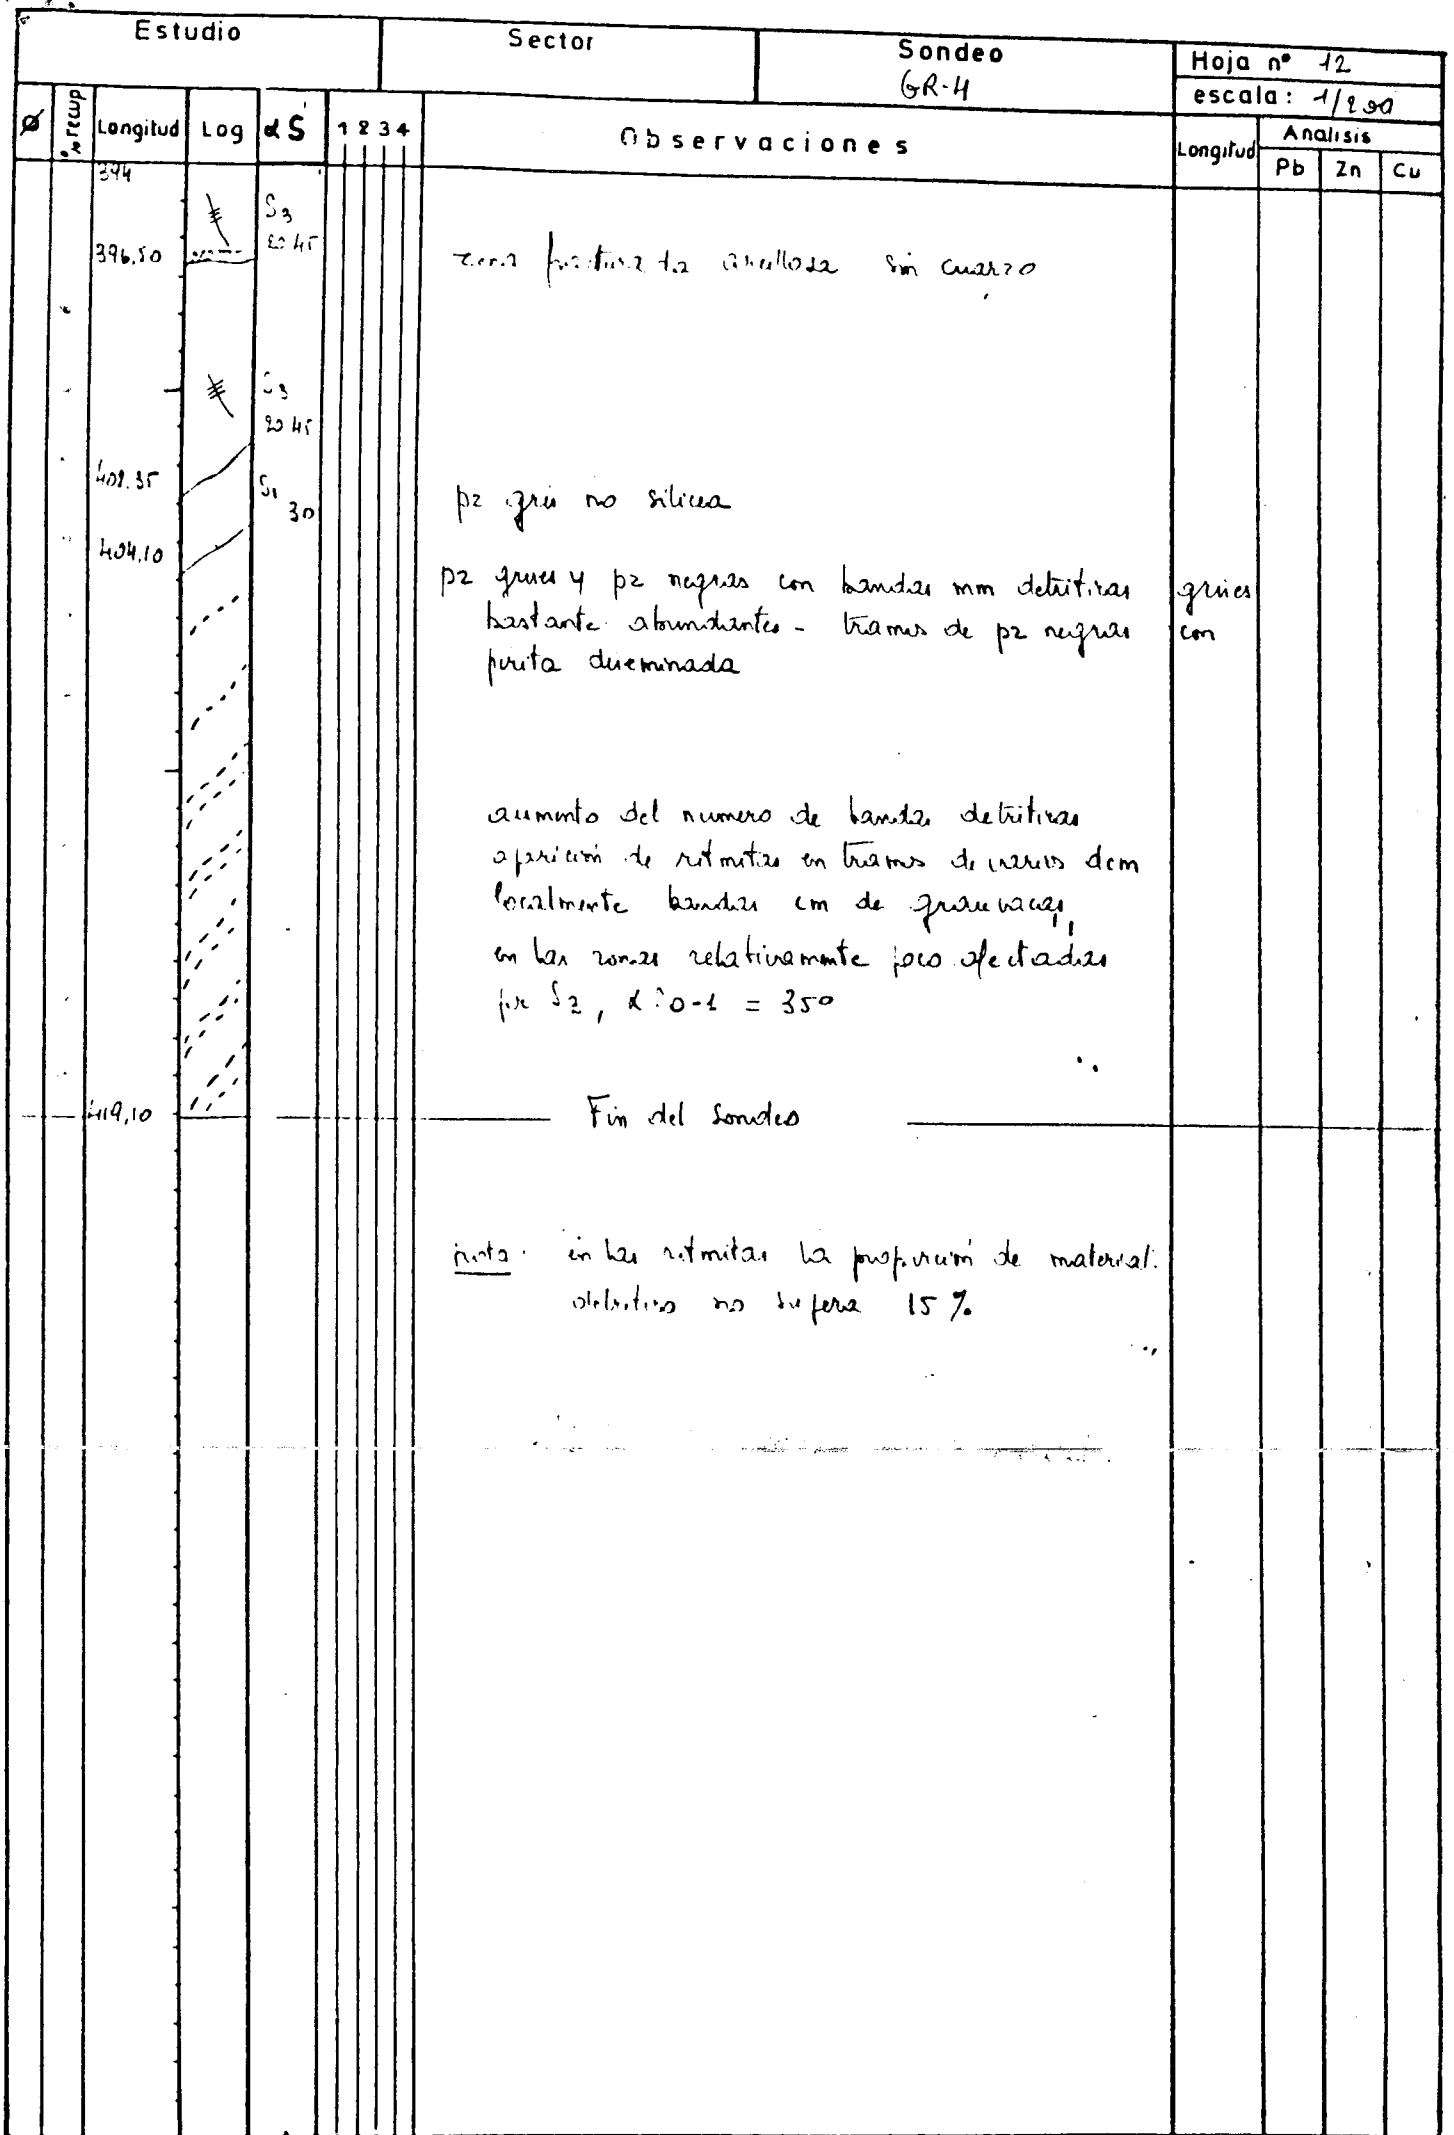 Estudio Sector Sondeo Hoja nº 12
GR-4 escala: 1/200
Ø % recup Longitud Log α S 1 2 3 4 Observaciones Longitud Analisis
Pb Zn Cu
394
S3
20 45
396,50 zona fracturada arcillosa sin cuarzo
S3
20 45
402.35 S1 30 pz gris no silicea
404,10
pz grises y pz negras con bandas mm detriticas grises
bastante abundantes - tramos de pz negras con
pirita diseminada
aumento del numero de bandas detriticas
aparición de ritmitas en tramos de varios dcm
localmente bandas cm de grauvacas,
en las zonas relativamente poco afectadas
por S2, α S0-1 = 35º
419,10 Fin del Sondeo
nota. en las ritmitas la proporción de material
detritico no supera 15 %